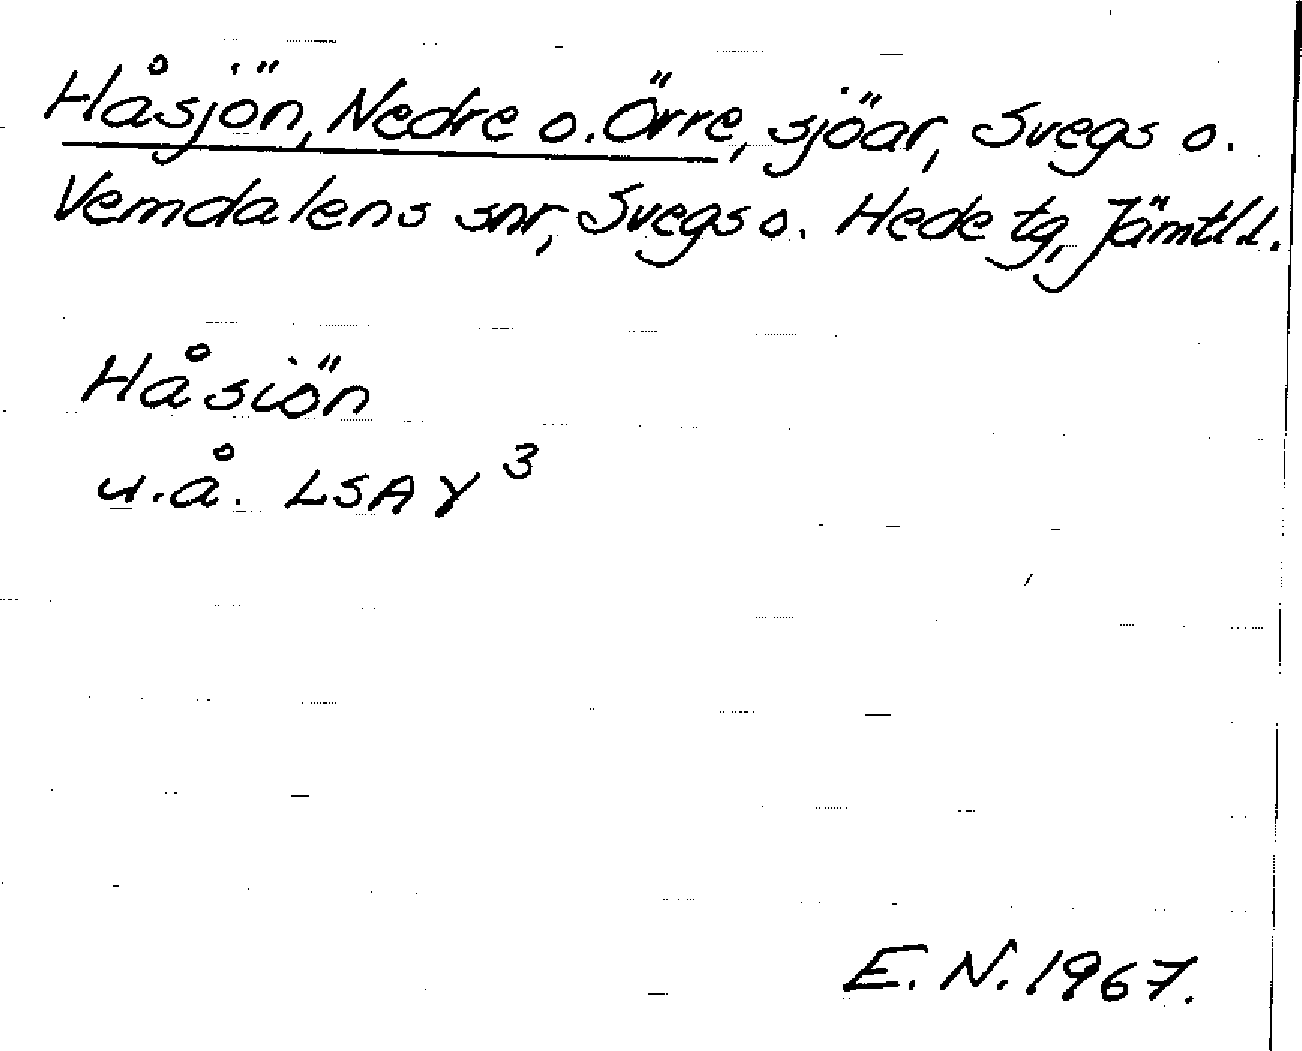 Håsjön, Nedre o. Örre, sjöar, Svegs o.
Vemdalens snr, Svegs o. Hede tg, Jämtl.l.
Håsiön
u.å. LSA Y 3
E.N. 1967.